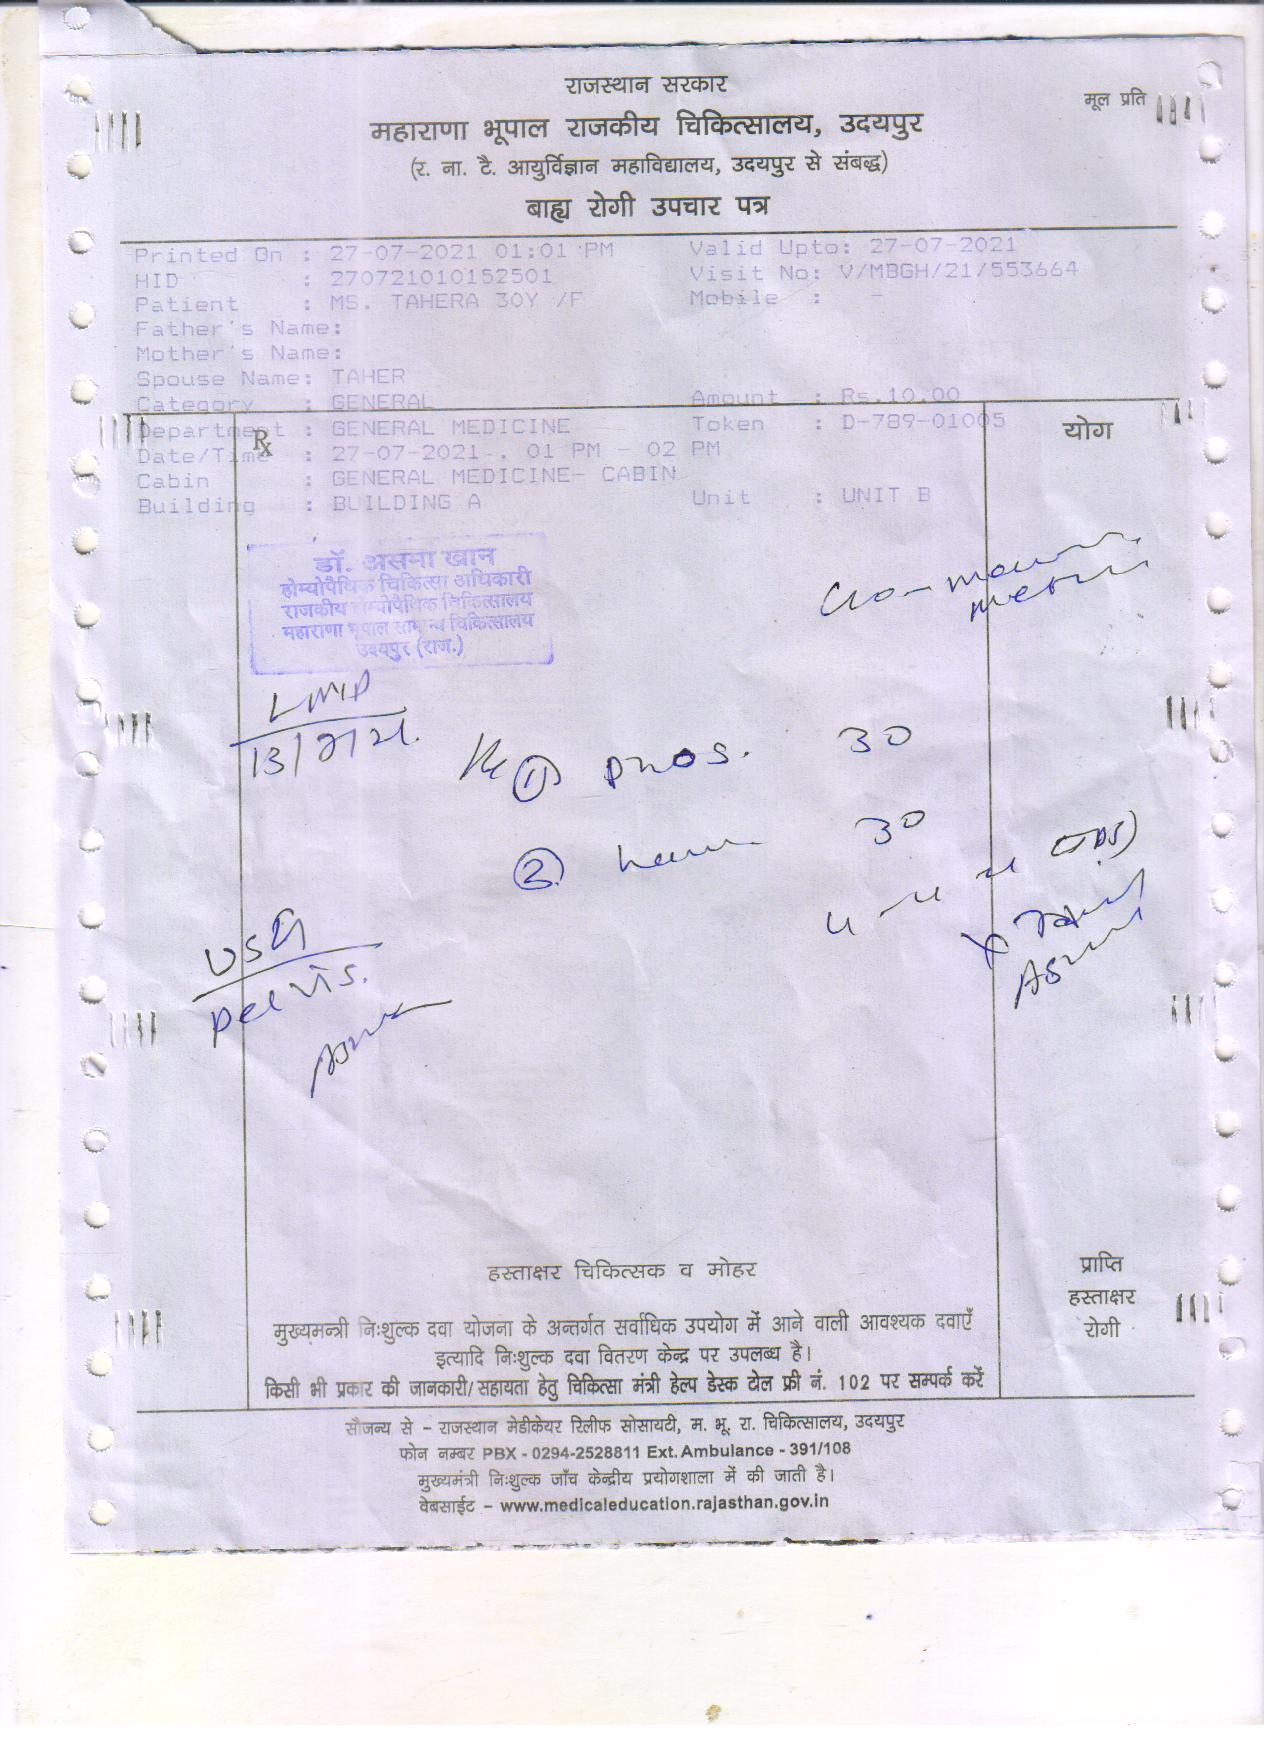 राजस्थान सरकार
मूल प्रति
महाराणा भूपाल राजकीय चिकित्सालय, उदयपुर
(र. ना. टै. आयुर्विज्ञान महाविद्यालय, उदयपुर से संबद्ध)
बाह्य रोगी उपचार पत्र
Printed On : 27-07-2021 01:01 PM Valid Upto: 27-07-2021
HID : 270721010152501 Visit No: V/MBGH/21/553664
Patient : MS. TAHERA 30Y /F Mobile : -
Father's Name:
Mother's Name:
Spouse Name: TAHER
Category : GENERAL Amount : Rs.10.00
Department : GENERAL MEDICINE Token : D-789-01005
℞ योग
Date/Time : 27-07-2021-, 01 PM - 02 PM
Cabin : GENERAL MEDICINE- CABIN
Building : BUILDING A Unit : UNIT B
डॉ. असमा खान
होम्योपैथिक चिकित्सा अधिकारी
राजकीय होम्योपैथिक चिकित्सालय
महाराणा भूपाल सामान्य चिकित्सालय
उदयपुर (राज.)
LMP
① Phos. 30
② 30
USG
Pelvis.
हस्ताक्षर चिकित्सक व मोहर
प्राप्ति
हस्ताक्षर
रोगी
मुख्यमन्त्री निःशुल्क दवा योजना के अन्तर्गत सर्वाधिक उपयोग में आने वाली आवश्यक दवाएँ
इत्यादि निःशुल्क दवा वितरण केन्द्र पर उपलब्ध है।
किसी भी प्रकार की जानकारी/सहायता हेतु चिकित्सा मंत्री हेल्प डेस्क टोल फ्री नं. 102 पर सम्पर्क करें
सौजन्य से – राजस्थान मेडीकेयर रिलीफ सोसायटी, म. भू. रा. चिकित्सालय, उदयपुर
फोन नम्बर PBX - 0294-2528811 Ext. Ambulance - 391/108
मुख्यमंत्री निःशुल्क जाँच केन्द्रीय प्रयोगशाला में की जाती है।
वेबसाईट – www.medicaleducation.rajasthan.gov.in